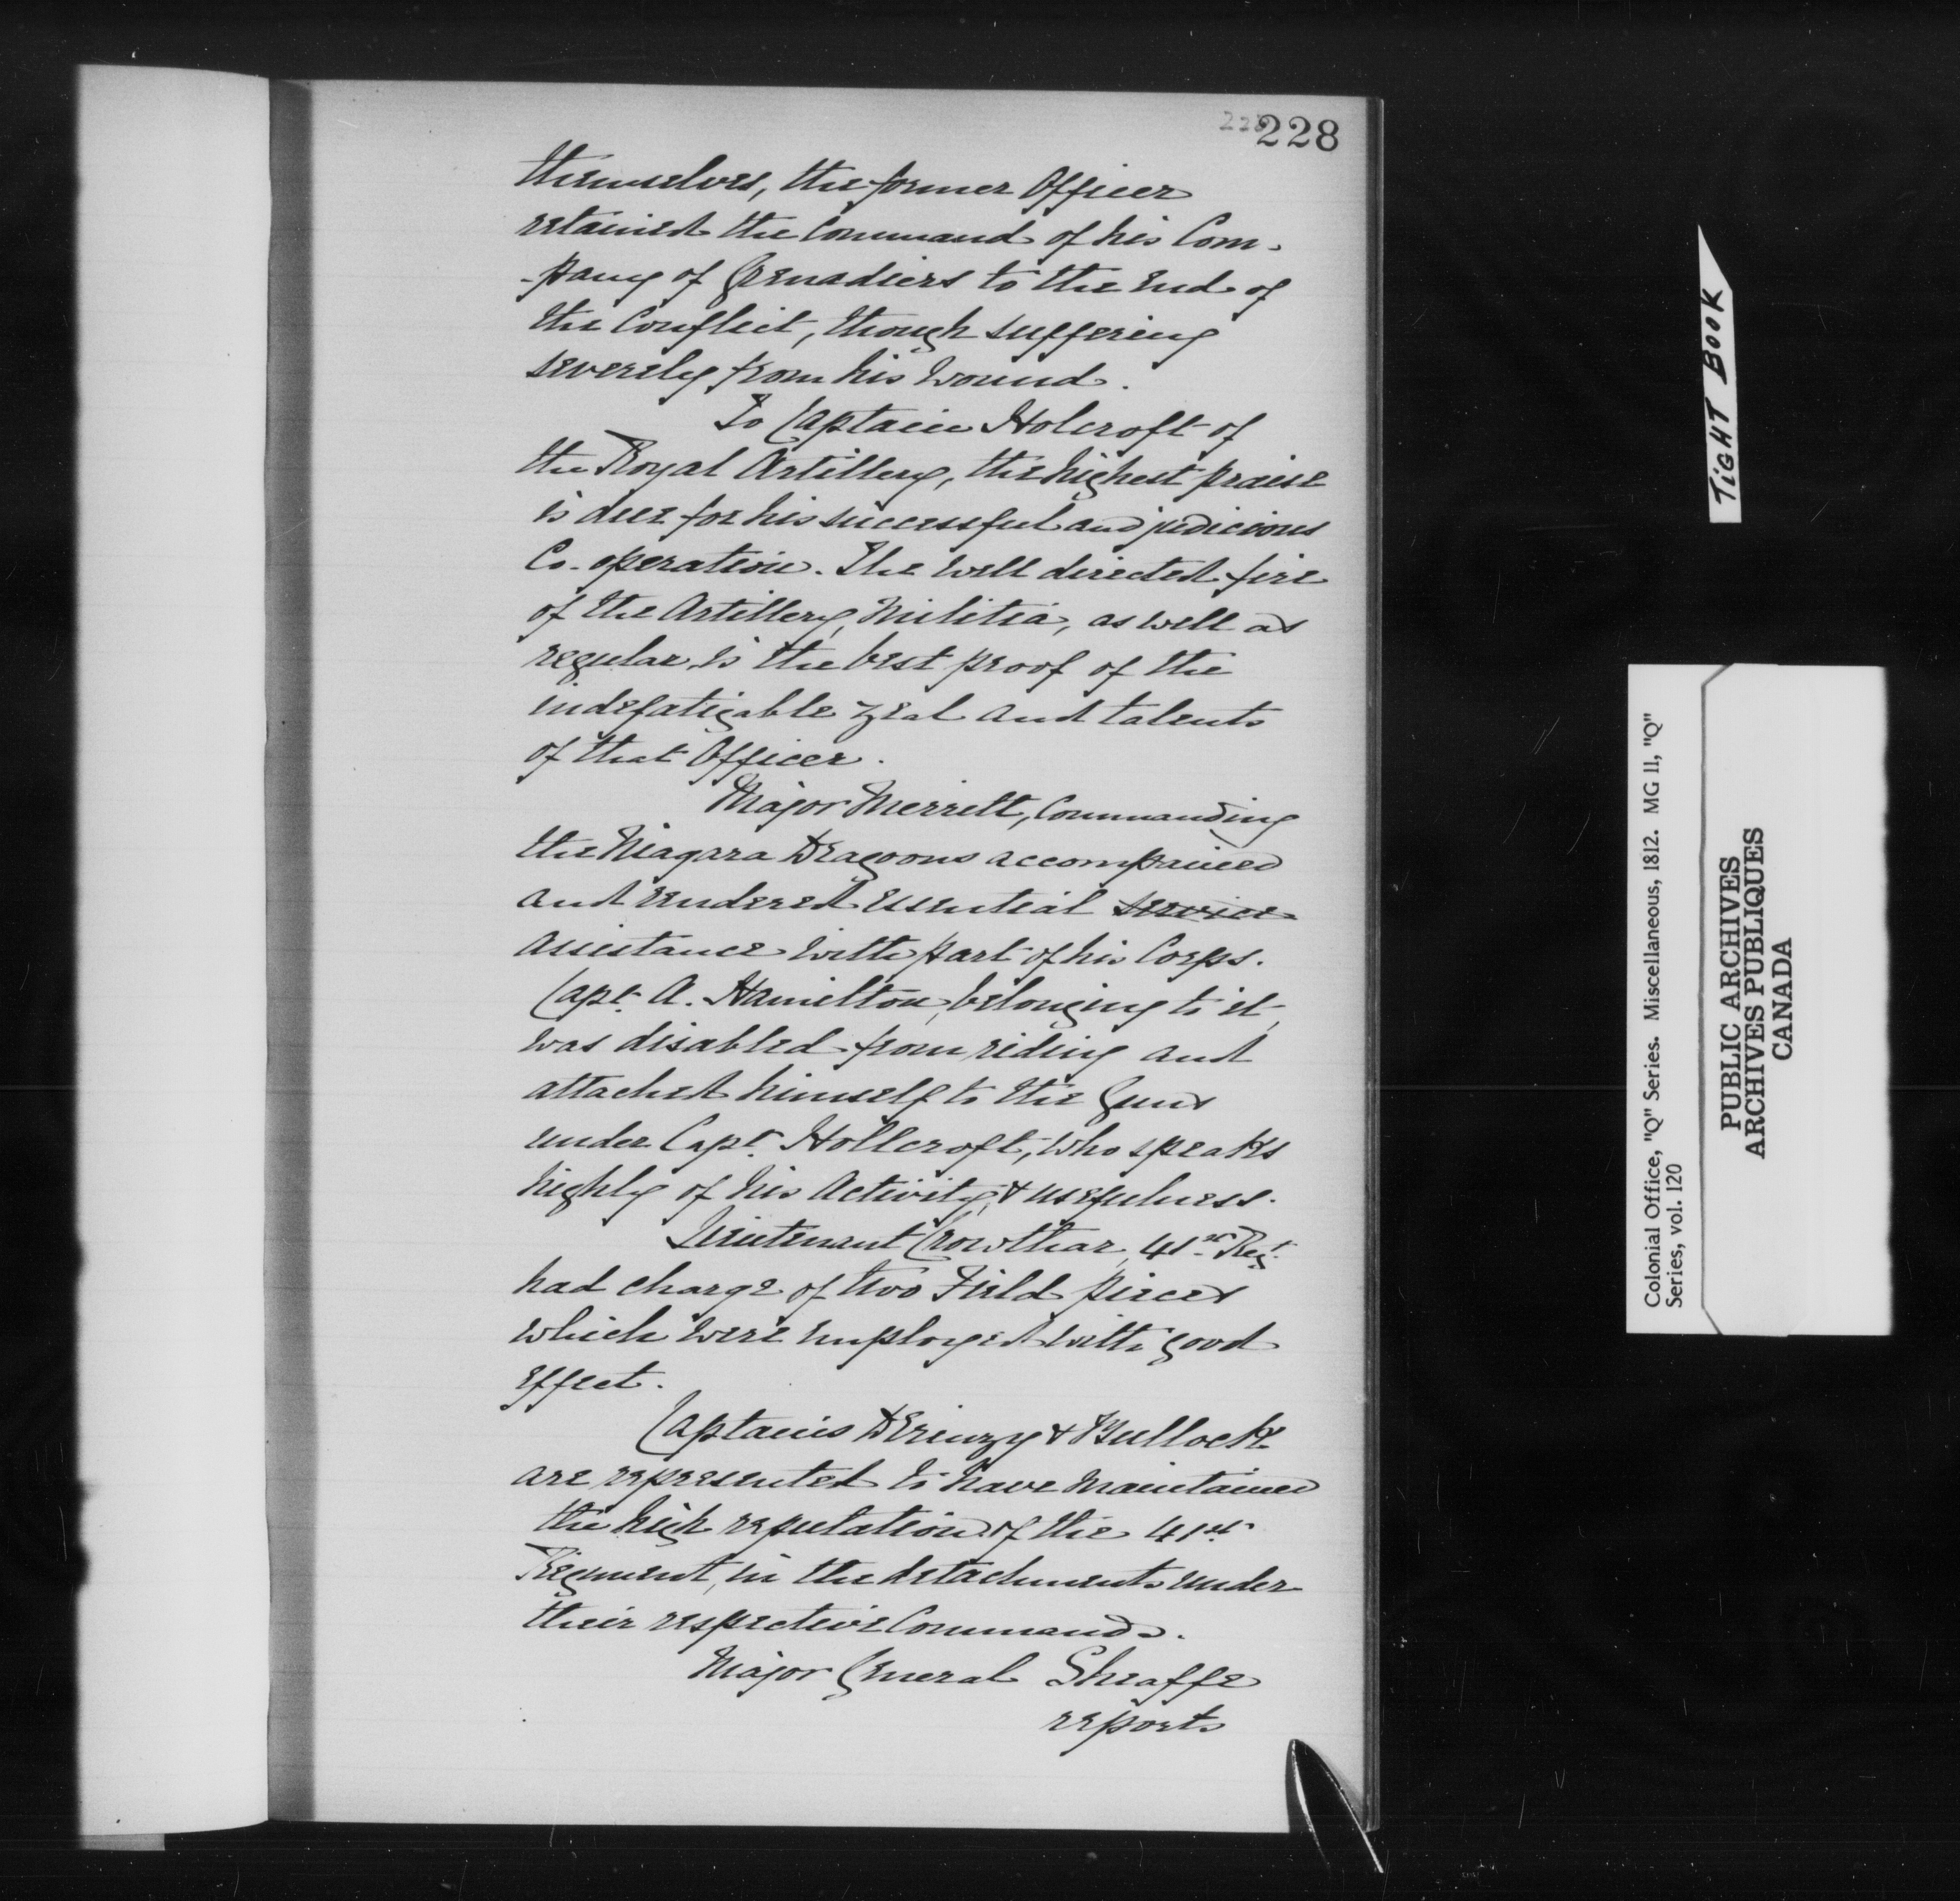 228
themselves, the former Officer
retained the Command of his Com-
-pany of Grenadiers to the end of
the Conflict, though suffering
severely from his wound.
To Captain Holcroft of
the Royal Artillery, the highest praise
is due for his successful and judicious
Co-operation. The well directed fire
of the Artillery, Militia, as well as
regular, is the best proof of the
indefatigable zeal and talents
of that Officer.
Major Merrett, Commanding
the Niagara Dragoons accompanied
and rendered essential service
assistance with part of his Corps.
Capt. A. Hamilton, belonging to it,
was disabled from riding and
attached himself to the Guns
under Capt. Hollcroft, who speaks
highly of his Activity, & usefulness.
Lieutenant Crowthar, 41st Regt.
had charge of two Field pieces
which were employed with good
effect.
Captains Derinzy & Bullock
are represented to have maintained
the high reputation of the 41st
Regiment, in the detachments under
their respective Commands.
Major General Sheaffe
reports
TIGHT BOOK
Colonial Office, "Q" Series. Miscellaneous, 1812. MG 11, "Q"
Series, vol. 120
PUBLIC ARCHIVES
ARCHIVES PUBLIQUES
CANADA